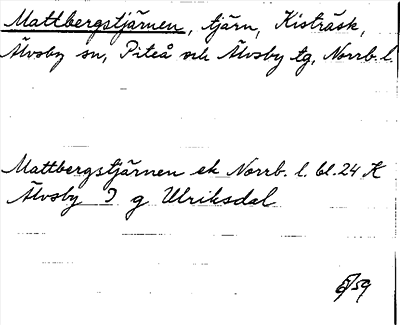 Mattbergstjärnen, tjärn, Kisträsk,
Älvsby sn, Piteå och Älvsby tg, Norrb. l.
Mattbergstjärnen ek Norrb. l. bl. 24 K
Älvsby I g Ulriksdal
/59